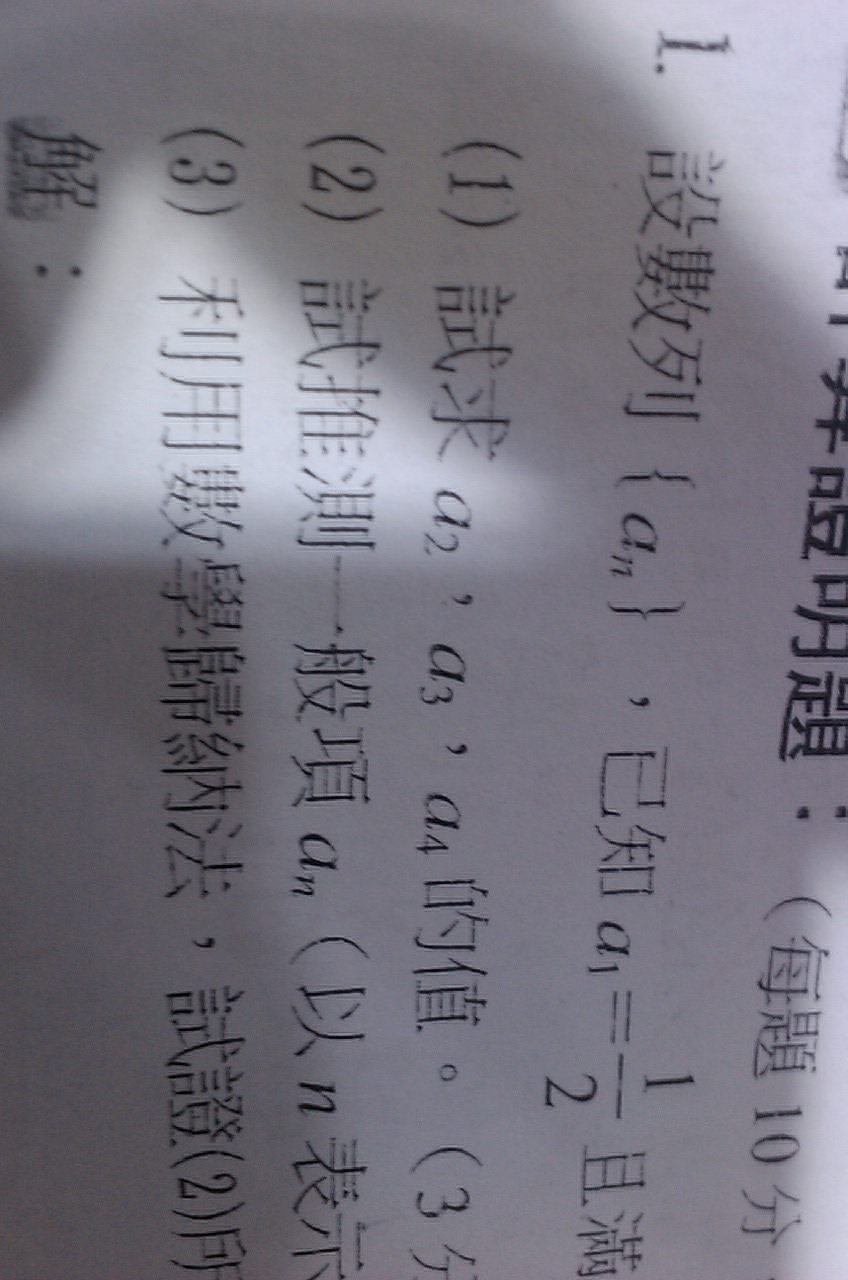 證明題：（每題 10 分
1. 設數列 { aₙ } ，已知 a₁ = 1/2 且滿
(1) 試求 a₂，a₃，a₄ 的值。（3 分
(2) 試推測一般項 aₙ（以 n 表示
(3) 利用數學歸納法，試證(2)所
解：